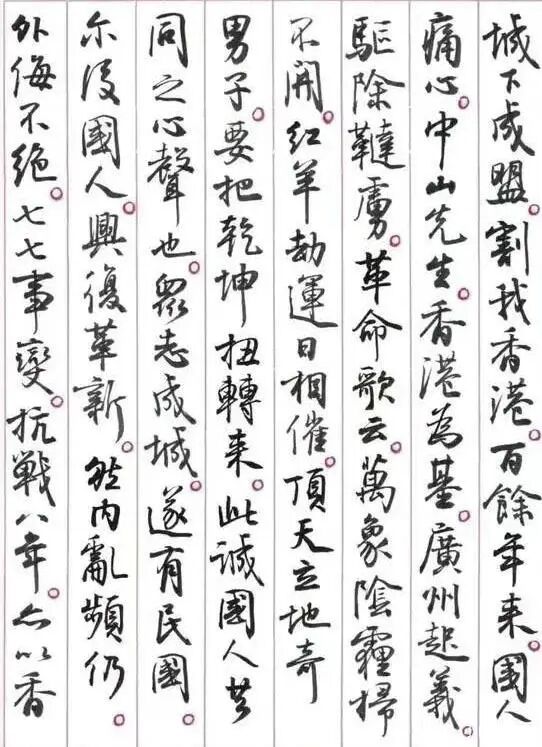 城下成盟。割我香港。百餘年来。國人
痛心。中山先生。香港為基。廣州起義。
驅除韃虜。革命歌云。萬象陰霾掃
不開。红羊劫運日相催。頂天立地奇
男子。要把乾坤扭轉来。此誠國人共
同之心聲也。眾志成城。遂有民國
尔後國人。興復革新。然内亂頻仍。
外侮不绝。七七事變。抗戰八年。亦以香